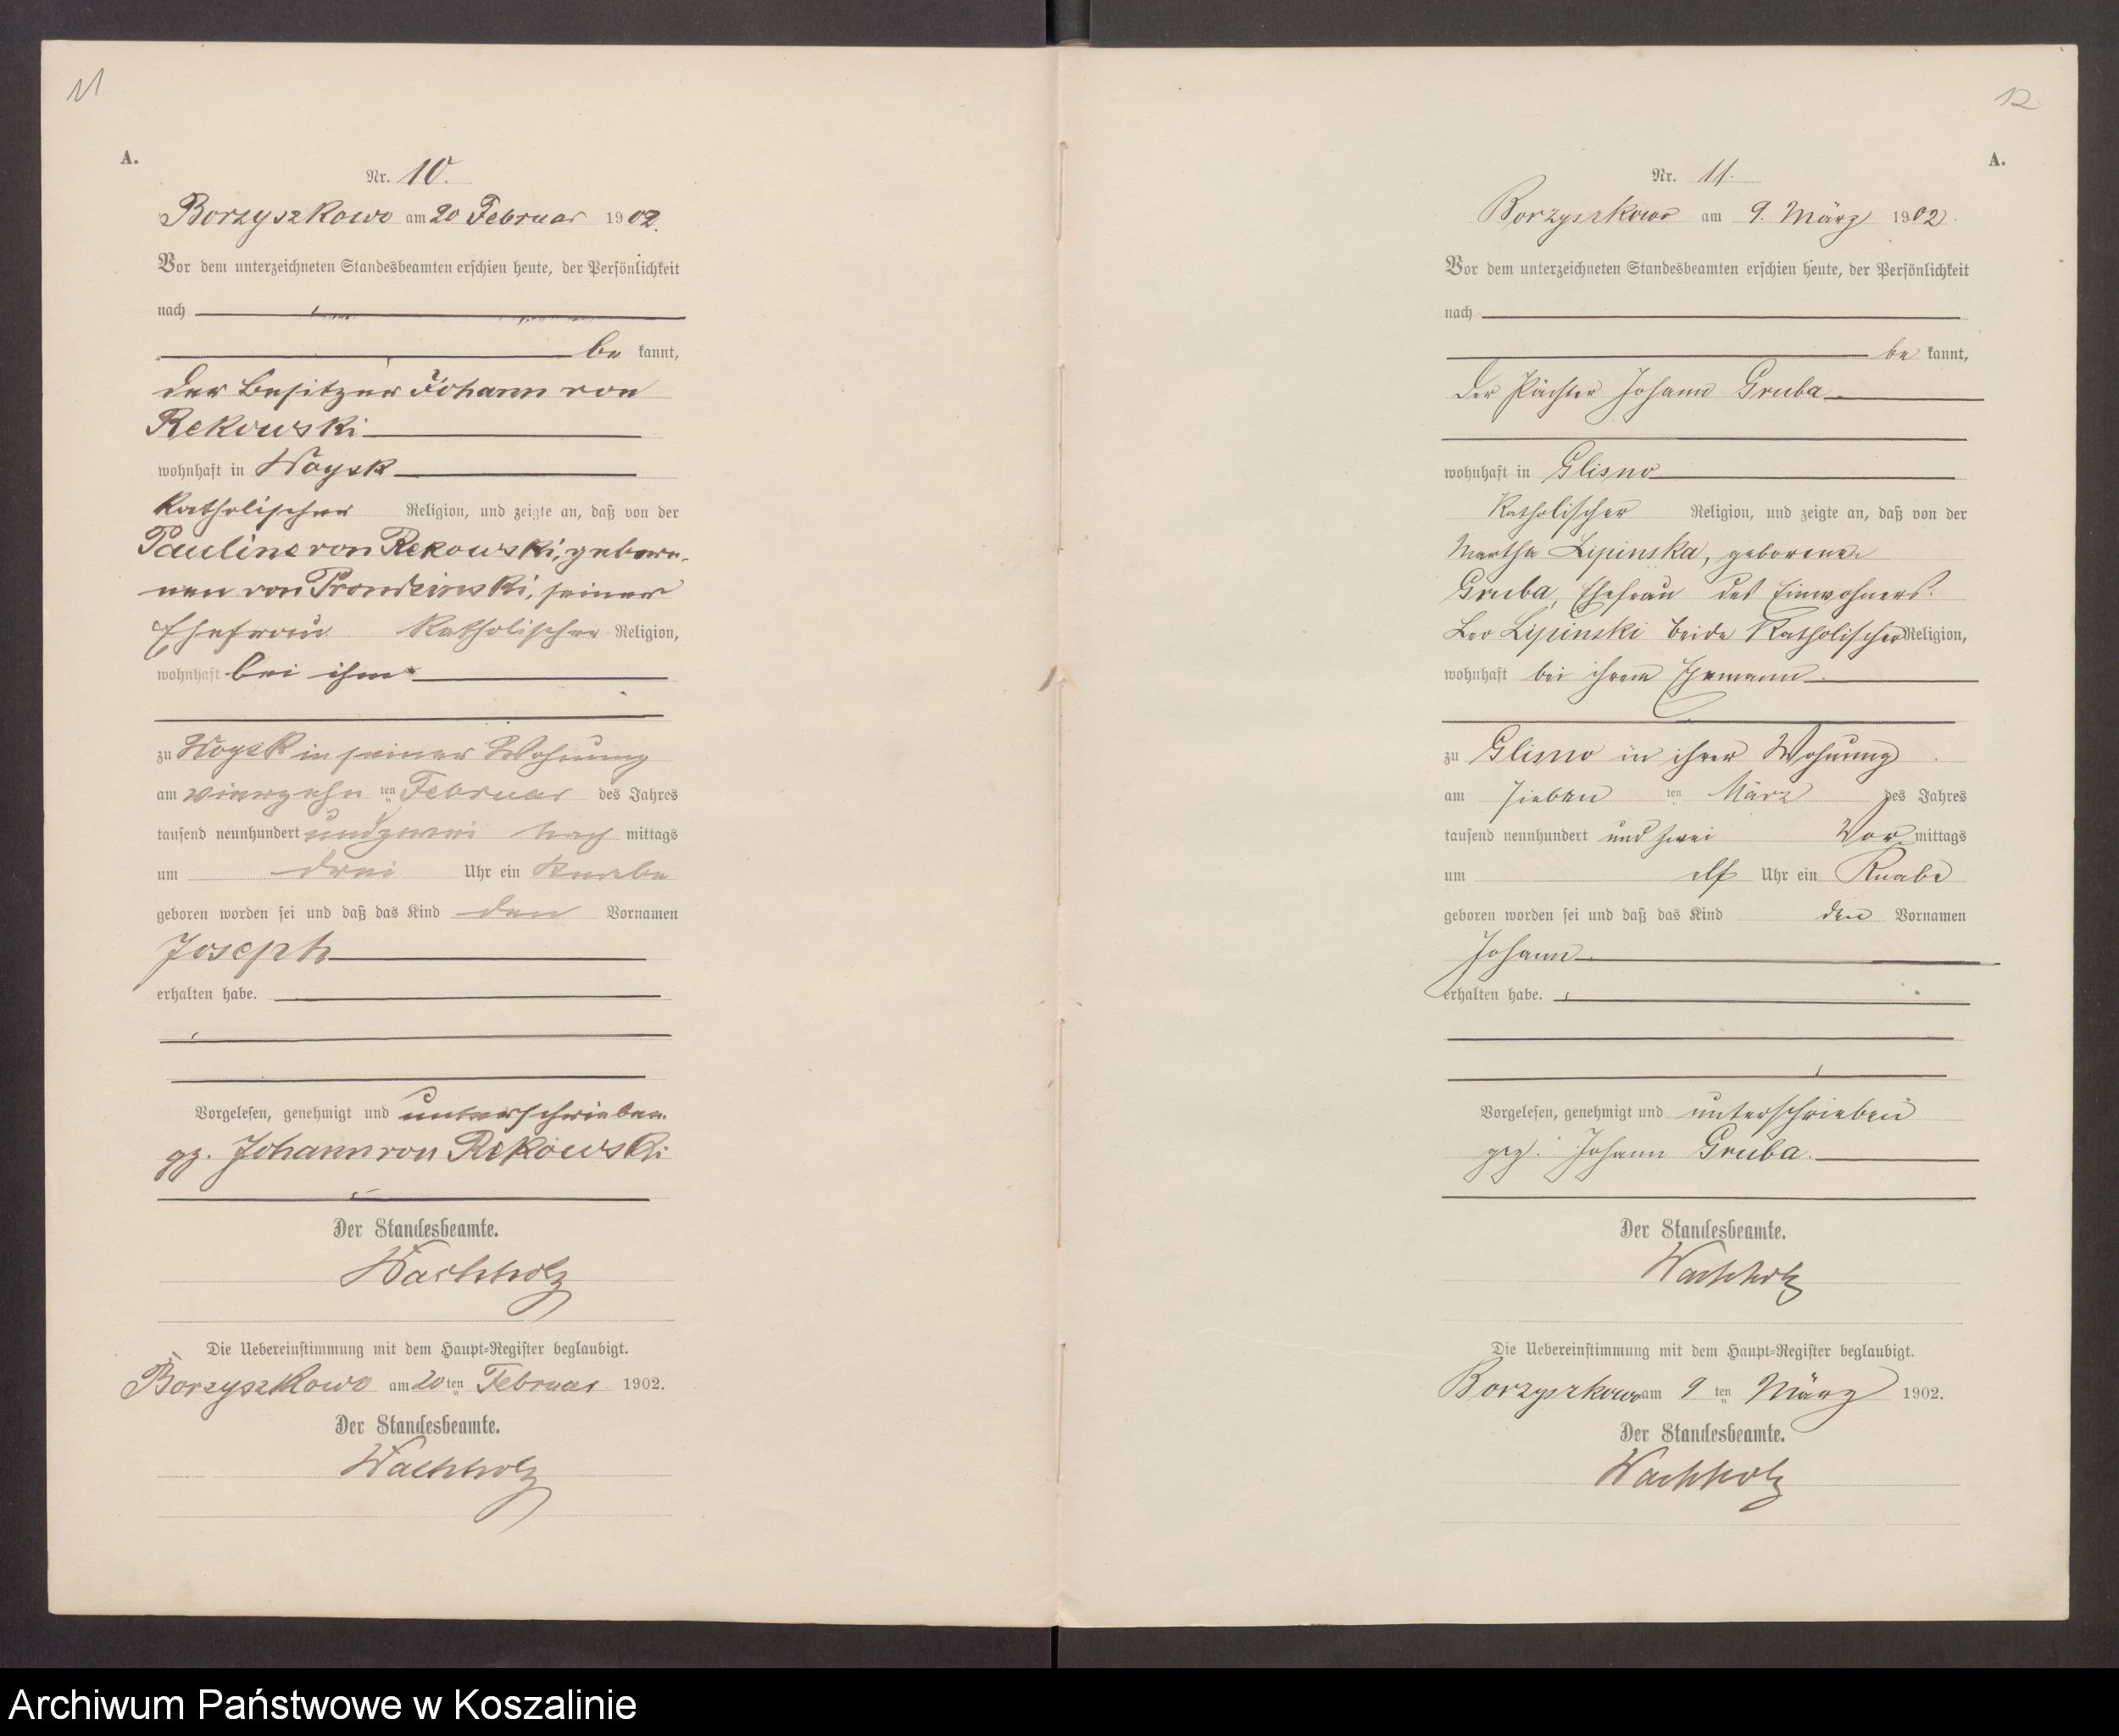 11
A.
Nr. 10.
Borzyszkowo am 20 Februar 1902.
Vor dem unterzeichneten Standesbeamten erschien heute, der Persönlichkeit
nach
be kannt,
der Besitzer Johann von
Rekowski
wohnhaft in Woysk
katholischer Religion, und zeigte an, daß von der
Pauline von Rekowski, gebore-
nen von Prondzinski, seiner
Ehefrau katholischer Religion,
wohnhaft bei ihm
zu Woysk in seiner Wohnung
am vierzehn ten Februar des Jahres
tausend neunhundert und zwei Nach mittags
um drei Uhr ein Knabe
geboren worden sei und daß das Kind den Vornamen
Joseph
erhalten habe.
Vorgelesen, genehmigt und unterschrieben
gz. Johann von Rekowski
Der Standesbeamte.
Wachholz
Die Uebereinstimmung mit dem Haupt-Register beglaubigt.
Borzyszkowo am 20ten Februar 1902.
Der Standesbeamte.
Wachholz
12
A.
Nr. 11.
Borzyszkowo am 9. März 1902.
Vor dem unterzeichneten Standesbeamten erschien heute, der Persönlichkeit
nach
be kannt,
der Pächter Johann Gruba
wohnhaft in Glisno
Katholischer Religion, und zeigte an, daß von der
Martha Lipinska, geborenen
Gruba, Ehefrau des Einwohners
Leo Lipinski beide Katholischer Religion,
wohnhaft bei ihrem Ehemann
zu Glisno in ihrer Wohnung
am sieben ten März des Jahres
tausend neunhundert und zwei Vor mittags
um elf Uhr ein Knabe
geboren worden sei und daß das Kind den Vornamen
Johann
erhalten habe.
Vorgelesen, genehmigt und unterschrieben
gez. Johann Gruba.
Der Standesbeamte.
Wachholz
Die Uebereinstimmung mit dem Haupt-Register beglaubigt.
Borzyszkowo am 9 ten März 1902.
Der Standesbeamte.
Wachholz
Archiwum Państwowe w Koszalinie